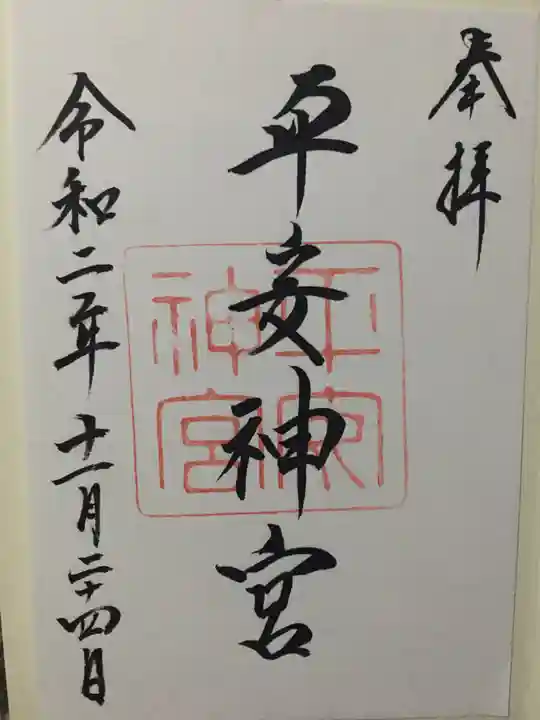 奉拝
平安神宮
平安神宮
令和二年十一月二十四日